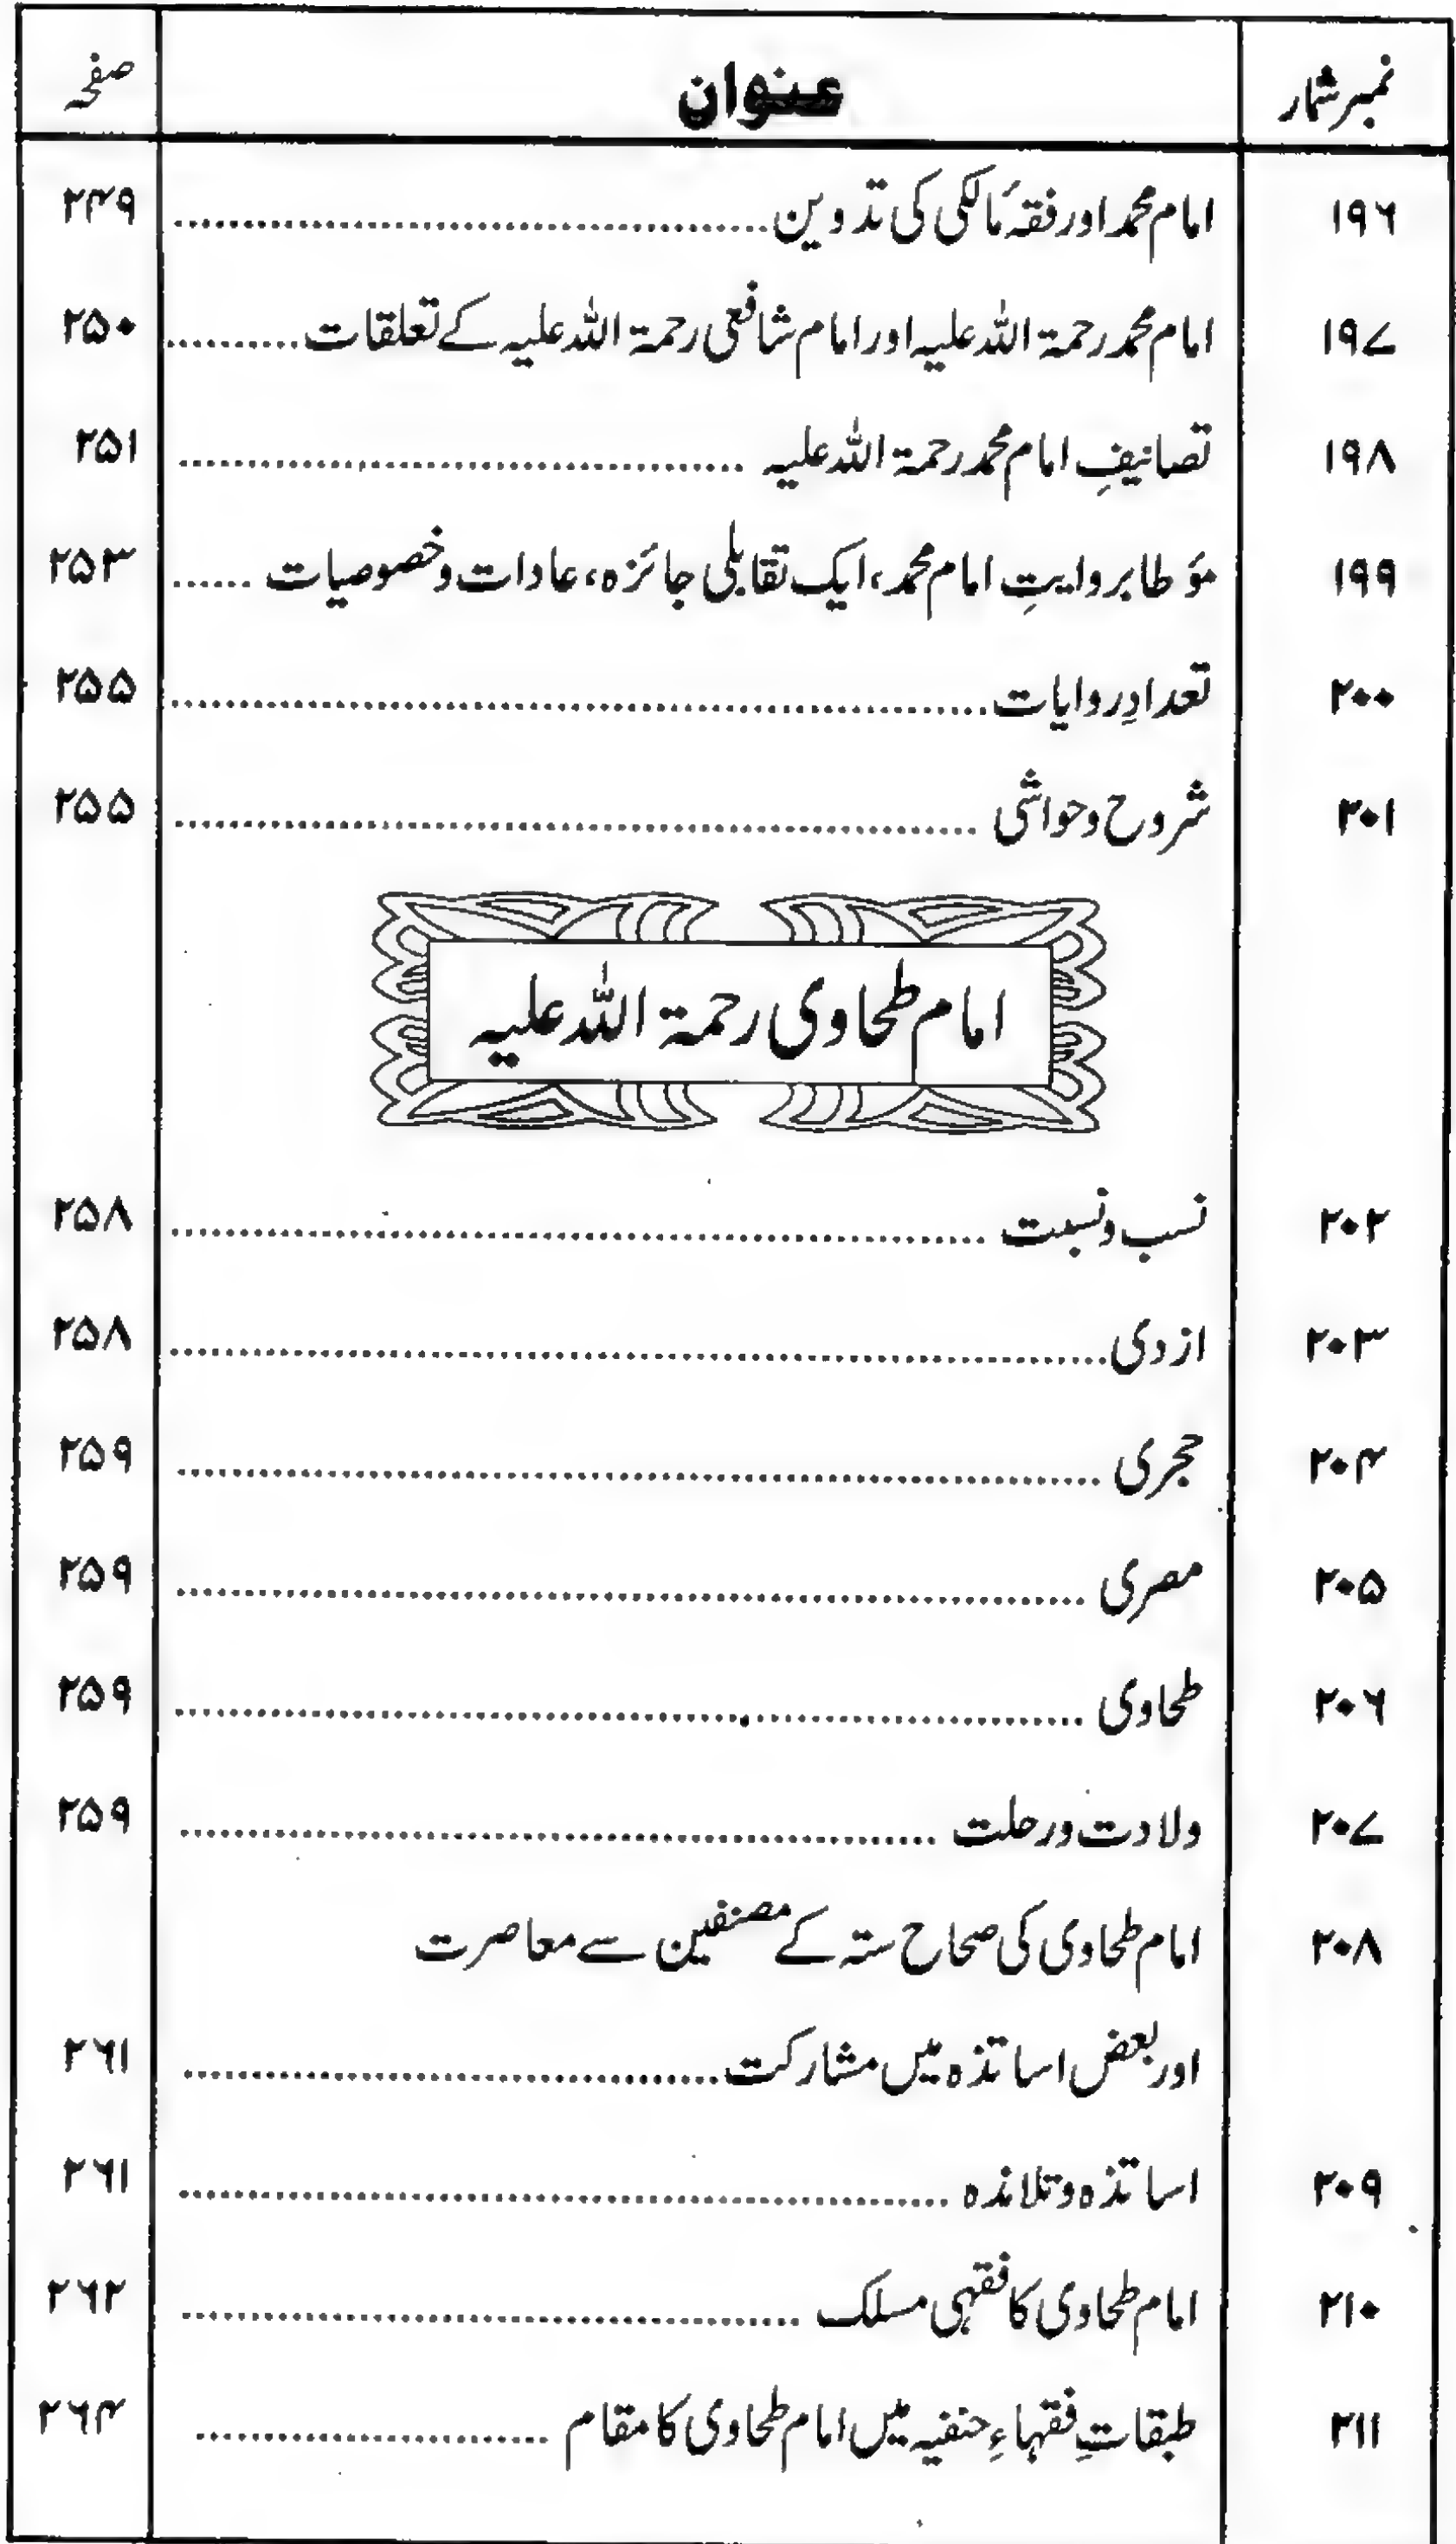 نمبر شمار عنوان صفحہ
۱۹۶ امام محمد اور فقہ مالکی کی تدوین........................................ ۲۴۹
۱۹۷ امام محمد رحمۃ اللہ علیہ اور امام شافعی رحمۃ اللہ علیہ کے تعلقات.......... ۲۵۰
۱۹۸ تصانیفِ امام محمد رحمۃ اللہ علیہ ........................................ ۲۵۱
۱۹۹ مؤطا بروایتِ امام محمد، ایک تقابلی جائزہ، عادات وخصوصیات ...... ۲۵۳
۲۰۰ تعدادِ روایات........................................ ۲۵۵
۲۰۱ شروح وحواشی ........................................ ۲۵۵
امام طحاوی رحمۃ اللہ علیہ
۲۰۲ نسب ونسبت ........................................ ۲۵۸
۲۰۳ ازدی........................................ ۲۵۸
۲۰۴ حجری ........................................ ۲۵۹
۲۰۵ مصری ........................................ ۲۵۹
۲۰۶ طحاوی ........................................ ۲۵۹
۲۰۷ ولادت ورحلت ........................................ ۲۵۹
۲۰۸ امام طحاوی کی صحاح ستہ کے مصنفین سے معاصرت
اور بعض اساتذہ میں مشارکت........................................ ۲۶۱
۲۰۹ اساتذہ وتلامذہ ........................................ ۲۶۱
۲۱۰ امام طحاوی کا فقہی مسلک ........................................ ۲۶۲
۲۱۱ طبقاتِ فقہاءِ حنفیہ میں امام طحاوی کا مقام ......................... ۲۶۴